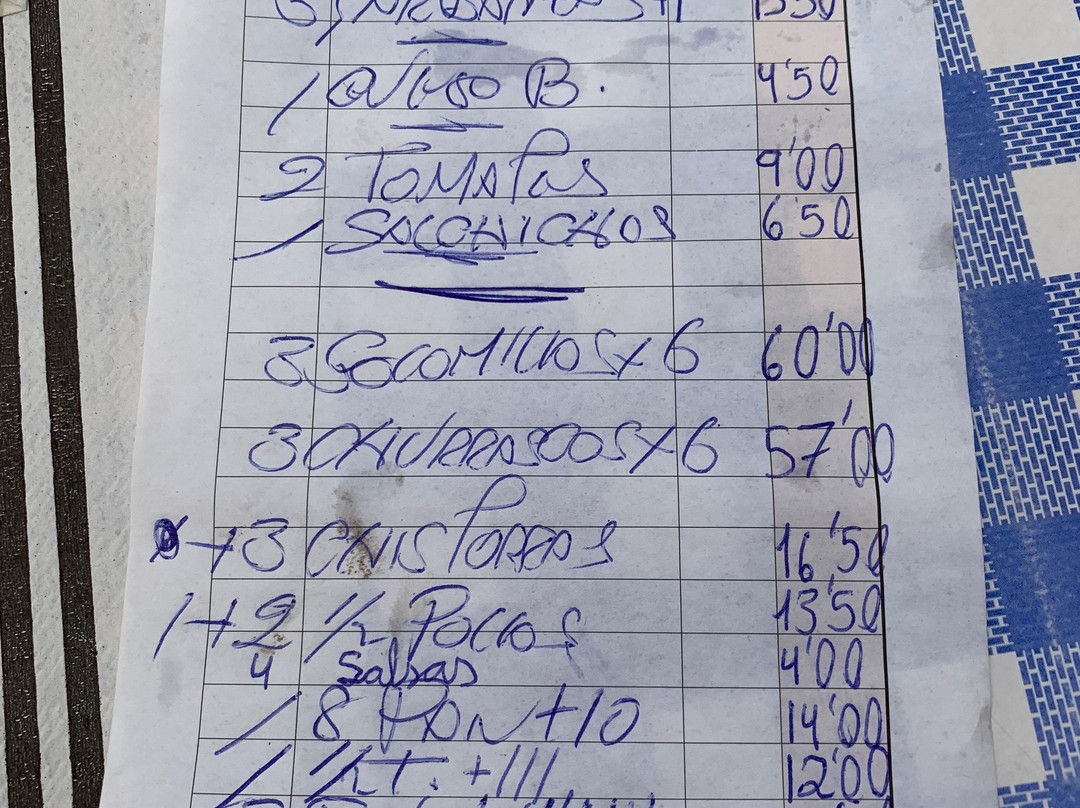 1 QUESO B. 4'50
2 TOMATES 9'00
1 SALCHICHAS 6'50
3 SOLOMILLOS x 6 60'00
3 CHURRASCOS x 6 57'00
+ 3 CHISTORRAS 16'50
1 + 2 1/2 POLLOS 13'50
4 Salsas 4'00
1 8 PAN + 10 14'00
12'00